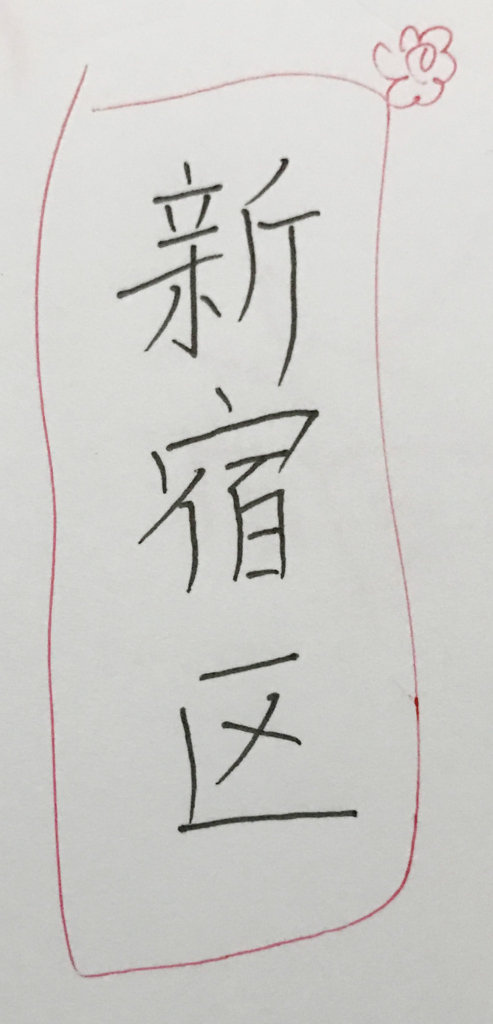 新宿区